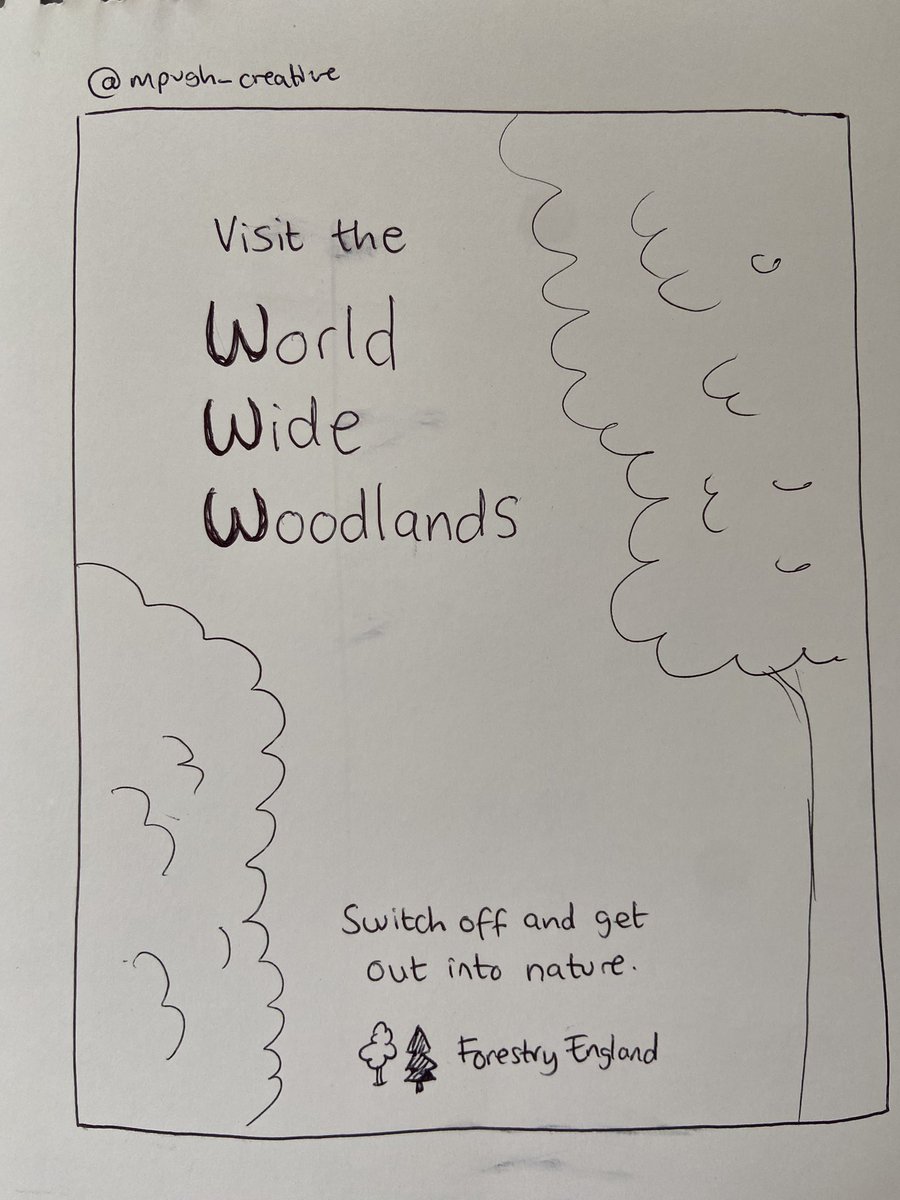 @mpugh_creative
Visit the
World
Wide
Woodlands
Switch off and get
out into nature.
Forestry England